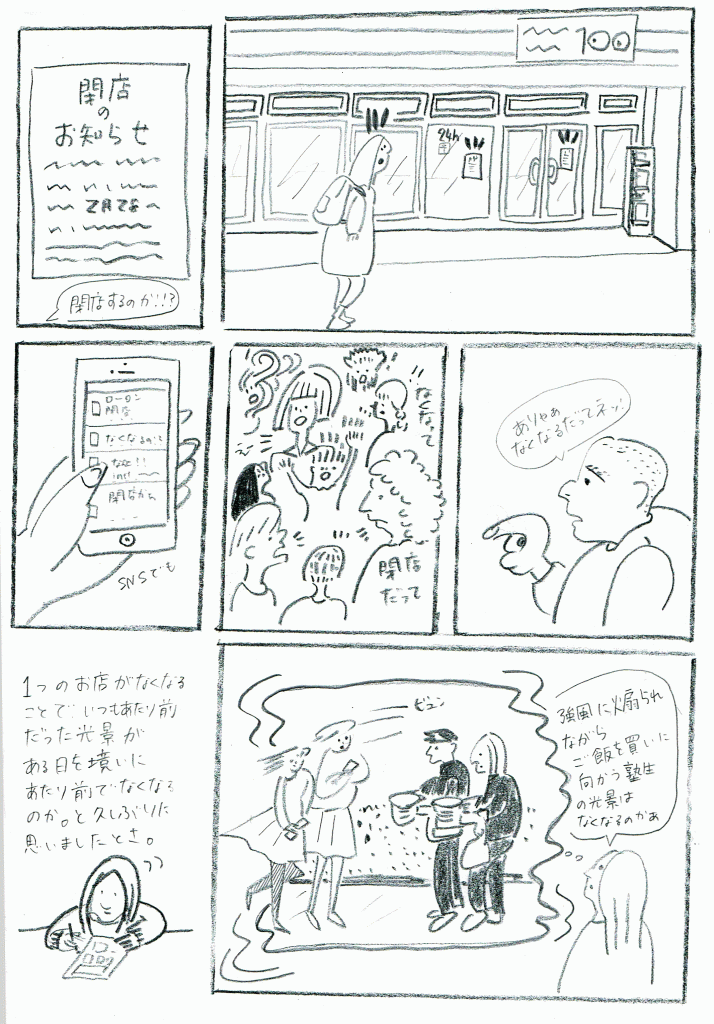 100
24h
閉店
の
お知らせ
2月28
閉店するのか!!?
なくなって
閉店
だって
ありゃぁ
なくなるだってネッ!
ローロン
閉店
なくなるの!?
なぜ!!
閉店から
SNSでも
ビュン
強風に煽られ
ながら
ご飯を買いに
向かう塾生
の光景は
なくなるのかぁ
1つのお店がなくなる
ことで、いつもあたり前
だった光景が
ある日を境いに
あたり前でなくなる
のか。と久しぶりに
思いましたとさ。